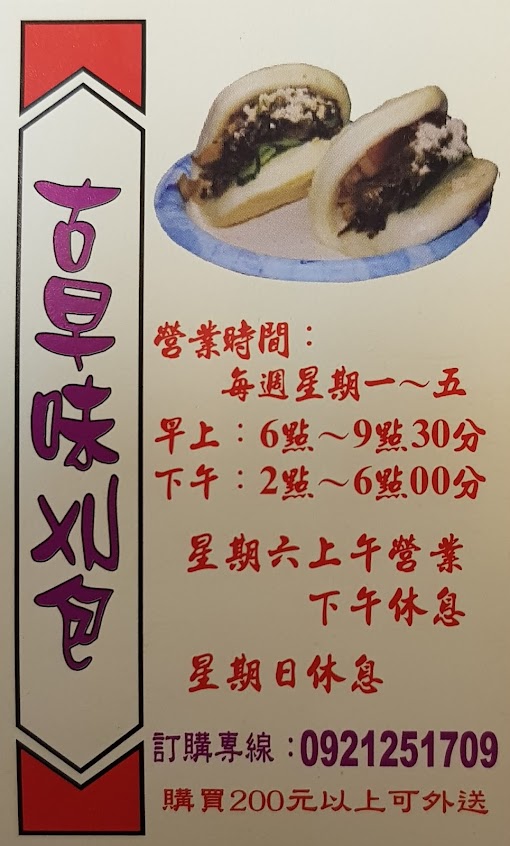 古早味刈包
營業時間：
每週星期一～五
早上：6點～9點30分
下午：2點～6點00分
星期六上午營業
下午休息
星期日休息
訂購專線：0921251709
購買200元以上可外送